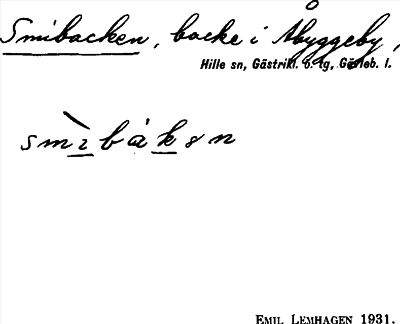 Smibacken, backe i Åbyggeby,
Hille sn, Gästrikl. ö. tg, Gävleb. l.
smìbákən
EMIL LEMHAGEN 1931.